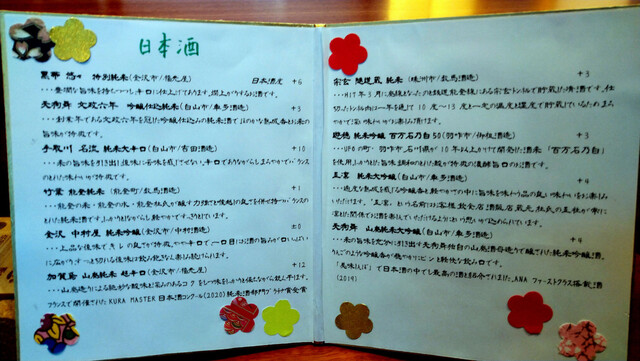 日本酒
黒帯 悠々 特別純米(金沢市/福光屋) 日本酒度 +6
…豊潤な旨味を持ちつつも、辛口に仕上げてあります。燗上がりするお酒です。
天狗舞 文政六年 吟醸仕込純米(白山市/車多酒造) +3
…創業年である文政六年を冠した吟醸仕込みの純米酒でほのかな熟成香とお米の
旨味が特徴です。
手取川 名流 純米大辛口(白山市/吉田酒造) +10
…米の旨味を引き出し後味に苦味を残してない。辛口でありながらしまやかでバランス
のとれた味わいが特徴です。
竹葉 能登純米(能登町/数馬酒造) +1
…能登の米・能登の水・能登杜氏が醸す力強さと後切れの良さを併せ持つ、バランスの
とれた純米酒です。
金沢 中村屋 純米吟醸(金沢市/中村酒造) ±0
…上品な後味でキレの良さが特徴。やや辛口で一口目はお酒の旨みが口いっぱい
に広がり、すーっと切れる後味は飲み飽きなく楽しみ続けられます。
加賀鳶 山廃純米 超辛口(金沢市/福光屋) +12
…山廃造りによる絶妙な酸味と深みのあるコク
フランスで開催された KURA MASTER 日本酒コンクール(2020)純米酒部門プラチナ賞受賞
宗玄 隧道蔵 純米(珠洲市/宗玄酒造) +3
…H17年3月に廃線となったのと鉄道能登線にある宗玄トンネルで貯蔵した清酒です。仕
切ったトンネル内は一年を通して10度〜13度と一定の温度と湿度で貯蔵しているためまろ
やかで深い味わいがお楽しみ頂けます。
遊穂 純米吟醸 百万石乃白50(羽咋市/御祖酒造) +3
…UFOの町・羽咋市。石川県が10年以上かけて開発した酒米「百万石乃白」
を使用。ふっくらとした旨味、調和のとれた飲みが特徴の濃醇旨口のお酒です。
五凛 純米大吟醸(白山市/車多酒造) +4
…過度な熟成を残さず吟醸香と軽やかでの中に旨味を味わう品の良い味わいをお楽しみ
いただけます。「五凛」という名前はお客様、飲食店、酒販店、蔵元、杜氏の五者が常に
凛とした関係でお酒を楽しんでいただけるようにという思いが込められています。
天狗舞 山廃純米大吟醸(白山市/車多酒造) +4
…米の旨味を充分に引き出す天狗舞独自の山廃酒母造りで醸された純米大吟醸酒。
りんごのような吟醸香が穏やかにピンと軽快な飲み口です。
「美味しんぼ」で日本酒の中でも最高の酒と紹介されました。ANA ファーストクラス搭載酒
(2019)